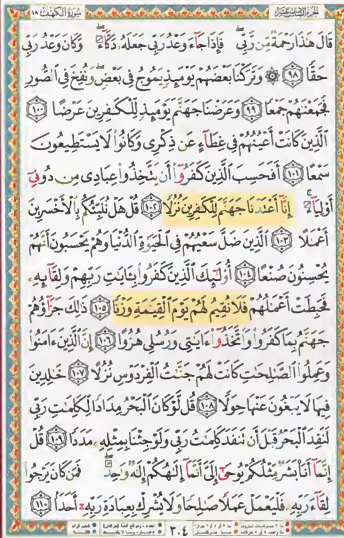 الجزء السادس عشر سورة الكهف ١٨
قَالَ هَٰذَا رَحْمَةٌ مِّن رَّبِّي فَإِذَا جَآءَ وَعْدُ رَبِّي جَعَلَهُۥ دَكَّآءَ وَكَانَ وَعْدُ رَبِّي
حَقًّا ٩٨ ۞ وَتَرَكْنَا بَعْضَهُمْ يَوْمَئِذٍ يَمُوجُ فِي بَعْضٍ وَنُفِخَ فِي ٱلصُّورِ
فَجَمَعْنَٰهُمْ جَمْعًا ٩٩ وَعَرَضْنَا جَهَنَّمَ يَوْمَئِذٍ لِّلْكَٰفِرِينَ عَرْضًا ١٠٠
ٱلَّذِينَ كَانَتْ أَعْيُنُهُمْ فِي غِطَآءٍ عَن ذِكْرِي وَكَانُوا۟ لَا يَسْتَطِيعُونَ
سَمْعًا ١٠١ أَفَحَسِبَ ٱلَّذِينَ كَفَرُوٓا۟ أَن يَتَّخِذُوا۟ عِبَادِي مِن دُونِيٓ
أَوْلِيَآءَ إِنَّآ أَعْتَدْنَا جَهَنَّمَ لِلْكَٰفِرِينَ نُزُلًا ١٠٢ قُلْ هَلْ نُنَبِّئُكُم بِٱلْأَخْسَرِينَ
أَعْمَٰلًا ١٠٣ ٱلَّذِينَ ضَلَّ سَعْيُهُمْ فِي ٱلْحَيَوٰةِ ٱلدُّنْيَا وَهُمْ يَحْسَبُونَ أَنَّهُمْ
يُحْسِنُونَ صُنْعًا ١٠٤ أُو۟لَٰٓئِكَ ٱلَّذِينَ كَفَرُوا۟ بِـَٔايَٰتِ رَبِّهِمْ وَلِقَآئِهِۦ
فَحَبِطَتْ أَعْمَٰلُهُمْ فَلَا نُقِيمُ لَهُمْ يَوْمَ ٱلْقِيَٰمَةِ وَزْنًا ١٠٥ ذَٰلِكَ جَزَآؤُهُمْ
جَهَنَّمُ بِمَا كَفَرُوا۟ وَٱتَّخَذُوٓا۟ ءَايَٰتِي وَرُسُلِي هُزُوًا ١٠٦ إِنَّ ٱلَّذِينَ ءَامَنُوا۟
وَعَمِلُوا۟ ٱلصَّٰلِحَٰتِ كَانَتْ لَهُمْ جَنَّٰتُ ٱلْفِرْدَوْسِ نُزُلًا ١٠٧ خَٰلِدِينَ
فِيهَا لَا يَبْغُونَ عَنْهَا حِوَلًا ١٠٨ قُل لَّوْ كَانَ ٱلْبَحْرُ مِدَادًا لِّكَلِمَٰتِ رَبِّي
لَنَفِدَ ٱلْبَحْرُ قَبْلَ أَن تَنفَدَ كَلِمَٰتُ رَبِّي وَلَوْ جِئْنَا بِمِثْلِهِۦ مَدَدًا ١٠٩ قُلْ
إِنَّمَآ أَنَا۠ بَشَرٌ مِّثْلُكُمْ يُوحَىٰٓ إِلَيَّ أَنَّمَآ إِلَٰهُكُمْ إِلَٰهٌ وَٰحِدٌ فَمَن كَانَ يَرْجُوا۟
لِقَآءَ رَبِّهِۦ فَلْيَعْمَلْ عَمَلًا صَٰلِحًا وَلَا يُشْرِكْ بِعِبَادَةِ رَبِّهِۦٓ أَحَدًۢا ١١٠
٣٠٤